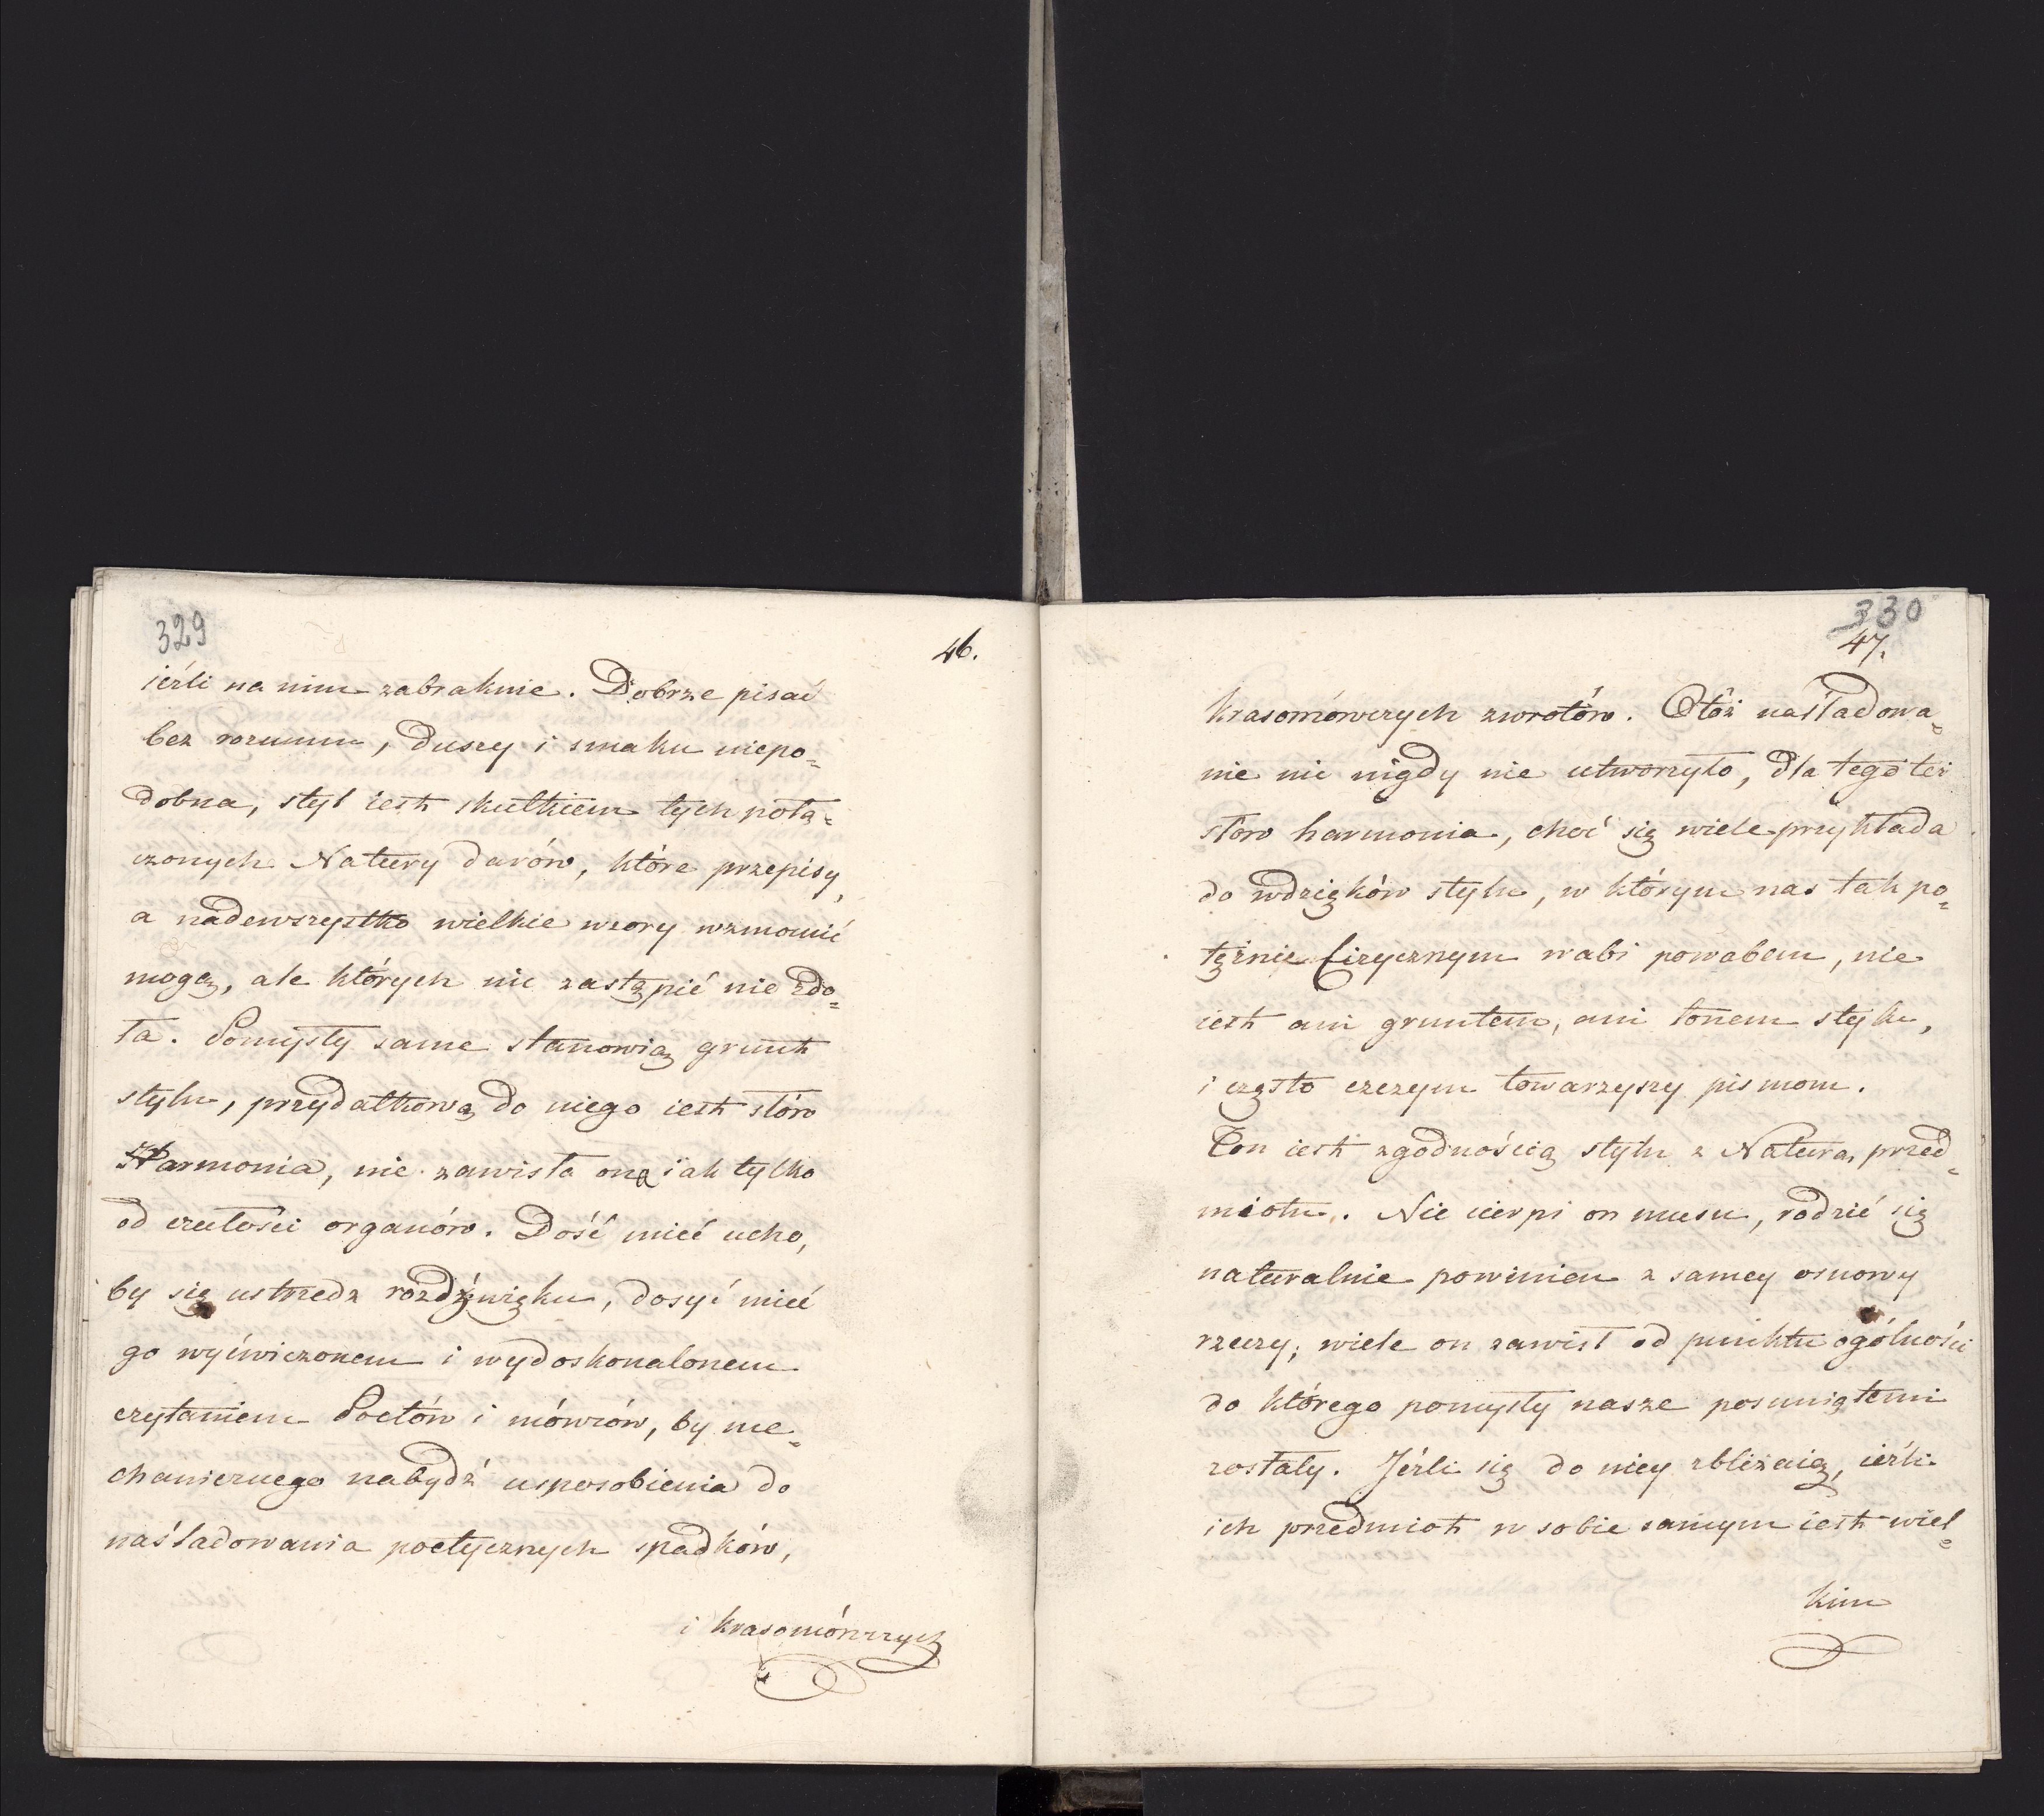 329
46.
ieźli na nim zabraknie. Dobrze pisać
bez rozumu, duszy i smaku niepo=
dobna, styl iest skutkiem tych połą=
czonych Natury darów, które przepisy,
a nadewszystko wielkie wzory wzmocnić
mogą, ale których nic zastąpić nie zdo=
ła. Pomysły same stanowią grunt
stylu, przydatkową do niego iest słów
Harmonia, nie zawisła ona iak tylko
od czułości organów. Dość mieć ucho,
by się ustrzedz rozdźwięku, dosyć mieć
go wyćwiczonem i wydoskonalonem
czytaniem Poetów i mówców, by me=
chanicznego nabydź usposobienia do
naśladowania poetycznych spadków,
i krasomówczych
330
47.
krasomówczych zwrotów. Otóż naśladowa=
nie nic nigdy nie utworzyło, dla tego też
słow harmonia, choć się wiele przykłada
do wdzięków stylu, w którym nas tak po=
tężnie fizycznym wabi powabem, nie
iest ani gruntem, ani tonem stylu,
i często czczym towarzyszy pismom.
Ton iest zgodnością stylu z Naturą przed=
miotu. Nie cierpi on musu, rodzić się
naturalnie powinien z samey osnowy
rzeczy; wiele on zawisł od punktu ogólności
do którego pomysły nasze posuniętemi
zostały. Jéźli się do niey zbliżaią, ieźli
ich przedmiot w sobie samym iest wiel=
kim